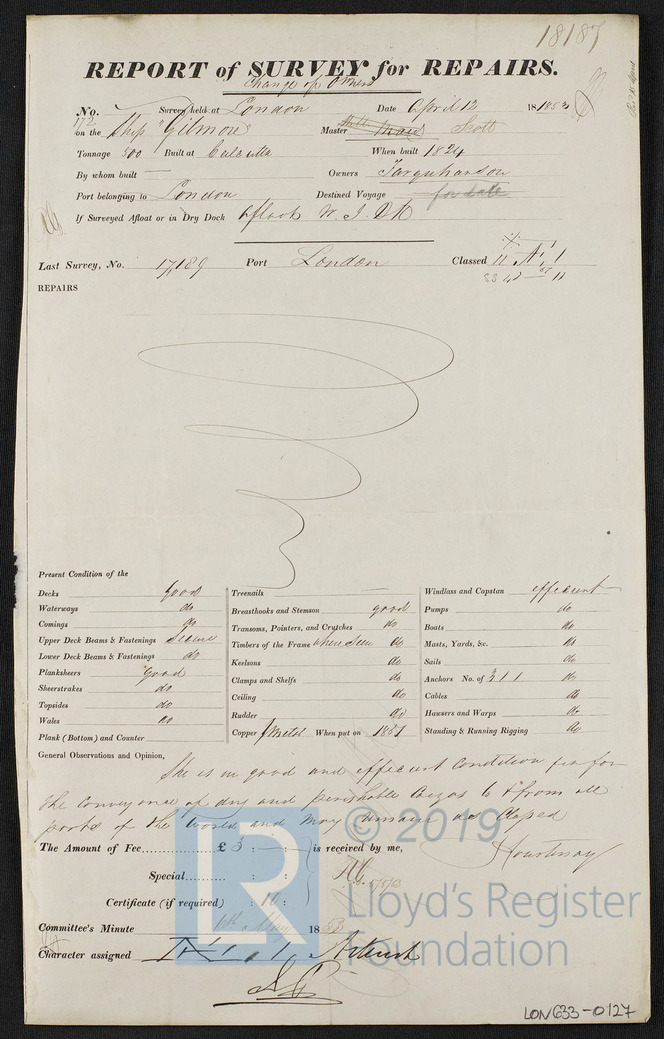 18187
REPORT of SURVEY for REPAIRS.
Change of Owners
No. 172 Survey held at London Date April 12 18 1853
on the Ship "Gilmore" Master Scott
Tonnage 500 Built at Calcutta When built 1824
By whom built — Owners Farquharson
Port belonging to London Destined Voyage
If Surveyed Afloat or in Dry Dock afloat W. I. Dk
Last Survey, No. 17,189 Port London Classed 11 A 1
REPAIRS
Present Condition of the
Decks good
Waterways do
Comings do
Upper Deck Beams & Fastenings Secure
Lower Deck Beams & Fastenings do
Planksheers Good
Sheerstrakes do
Topsides do
Wales do
Plank (Bottom) and Counter
Treenails —
Breasthooks and Stemson good
Transoms, Pointers, and Crutches do
Timbers of the Frame where seen do
Keelsons do
Clamps and Shelfs do
Ceiling do
Rudder do
Copper / Metal When put on 1851
Windlass and Capstan efficient
Pumps do
Boats do
Masts, Yards, &c. do
Sails do
Anchors No. of 3 2 1 1 do
Cables do
Hawsers and Warps do
Standing & Running Rigging do
General Observations and Opinion,
She is in good and efficient condition fit for
the conveyance of dry and perishable Cargos to & from all
parts of the World and may remain as Classed
The Amount of Fee £ 3 : — : is received by me,
Special : :
Certificate (if required) : 10 :
Committee's Minute May 18 53
Character assigned
© 2019
Lloyd's Register
Foundation
LR
LON633-0127